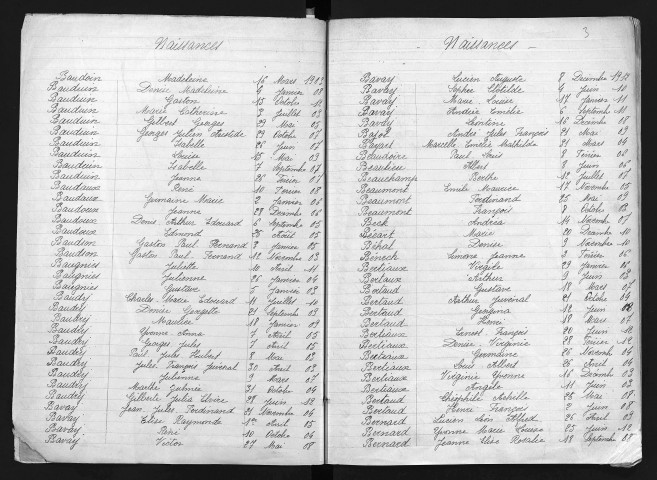 Naissances
Baudoin Madeleine 16 Mars 1903
Bauduin Denise Madeleine 9 Janvier 08
Bauduin Gaston 15 Octobre 12
Bauduin Marie Catherine 7 Juillet 03
Bauduin Gilbert Georges 29 Mai 05
Bauduin Georges Julien Aristide 29 Octobre 07
Bauduin Isabelle 28 Juin 07
Bauduin Louise 15 Mai 03
Bauduin Isabelle 7 Septembre 07
Bauduin Jeanne 26 Février 05
Baudaux René 10 Février 08
Baudoux Germaine Marie 2 Janvier 06
Baudoux Jeanne 28 Décembre 06
Baudoux Denis Arthur Edouard 6 Septembre 05
Baudoux Edmond 26 Août 05
Baudson Gaston Paul Fernand 3 Janvier 05
Baudson Gaston Paul Fernand 12 Novembre 03
Baugnies Juliette 10 Août 11
Baugnies Julienne 26 Janvier 04
Baugnies Gustave 5 Janvier 02
Baudry Charles Marie Edouard 11 Juillet 10
Baudry Denise Georgette 21 Septembre 03
Baudry Maurice 18 Janvier 09
Baudry Yvonne Anna 5 Avril 03
Baudry Georges Jules 7 Avril 05
Baudry Jules Hubert 8 Mai 02
Baudry Jules François Juvénal 30 Avril 03
Baudry Julienne 9 Mars 07
Baudry Marthe 31 Octobre 04
Baudry Gilberte Julia Claire 28 Juin 12
Bavay Jean Jules Ferdinand 21 Novembre 04
Bavay Elise Raymonde 1er Août 05
Bavay René 10 Octobre 04
Bavay Victor 27 Mai 08
3
Naissances
Bavay Lucien Auguste 8 Décembre 1901
Bavay Sophie Clotilde 9 Juin 10
Bavay Marie Louise 17 Janvier 11
Bavay Andrée Emélie 6 Septembre 11
Bavay 10 Décembre 08
André Jules François 21 Mai 09
Bayart Marcelle Emélie Mathilde 31 Mars 04
Beaudoire Paul Louis 8 Février 02
Beaulieu Albert 8 Juin 06
Beauchamp Berthe 12 Juillet 07
Beaumont Emile Maurice 17 Novembre 05
Beaumont Ferdinand 25 Mai 09
Beaumont François 2 Octobre 02
Beck Andréa 14 Novembre 07
Bécart Marie 20 Décembre 10
Béhal Denise 9 Novembre 10
Béneck Simone Jeanne 3 Février 06
Berlaux Virgile 29 Janvier 07
Berlaux Arthur 9 Juin 03
Berlaud Gustave 18 Mars 07
Berlaud Arthur Juvénal 21 Octobre 04
Berlaud Georgina 12 Juin 08
Berlaud Henri 18 Mars 07
Berlaux Ernest François 20 Juin 12
Berlaux Denise Virginie 28 Février 12
Berlaux Germaine 26 Novembre 04
Berlaux Louis Albert 26 Août 04
Berlaux Virginie Yvonne 16 Décembre 03
Berlaux Angèle 11 Juin 03
Berlaud Théophile Achille 26 Mai 08
Berlaud Henri François 2 Juin 08
Bernard Lucien Léon Alfred 26 Février 03
Bernard Yvonne Marie Louise 25 Juin 12
Bernard Jeanne Elise Rosalie 18 Septembre 07